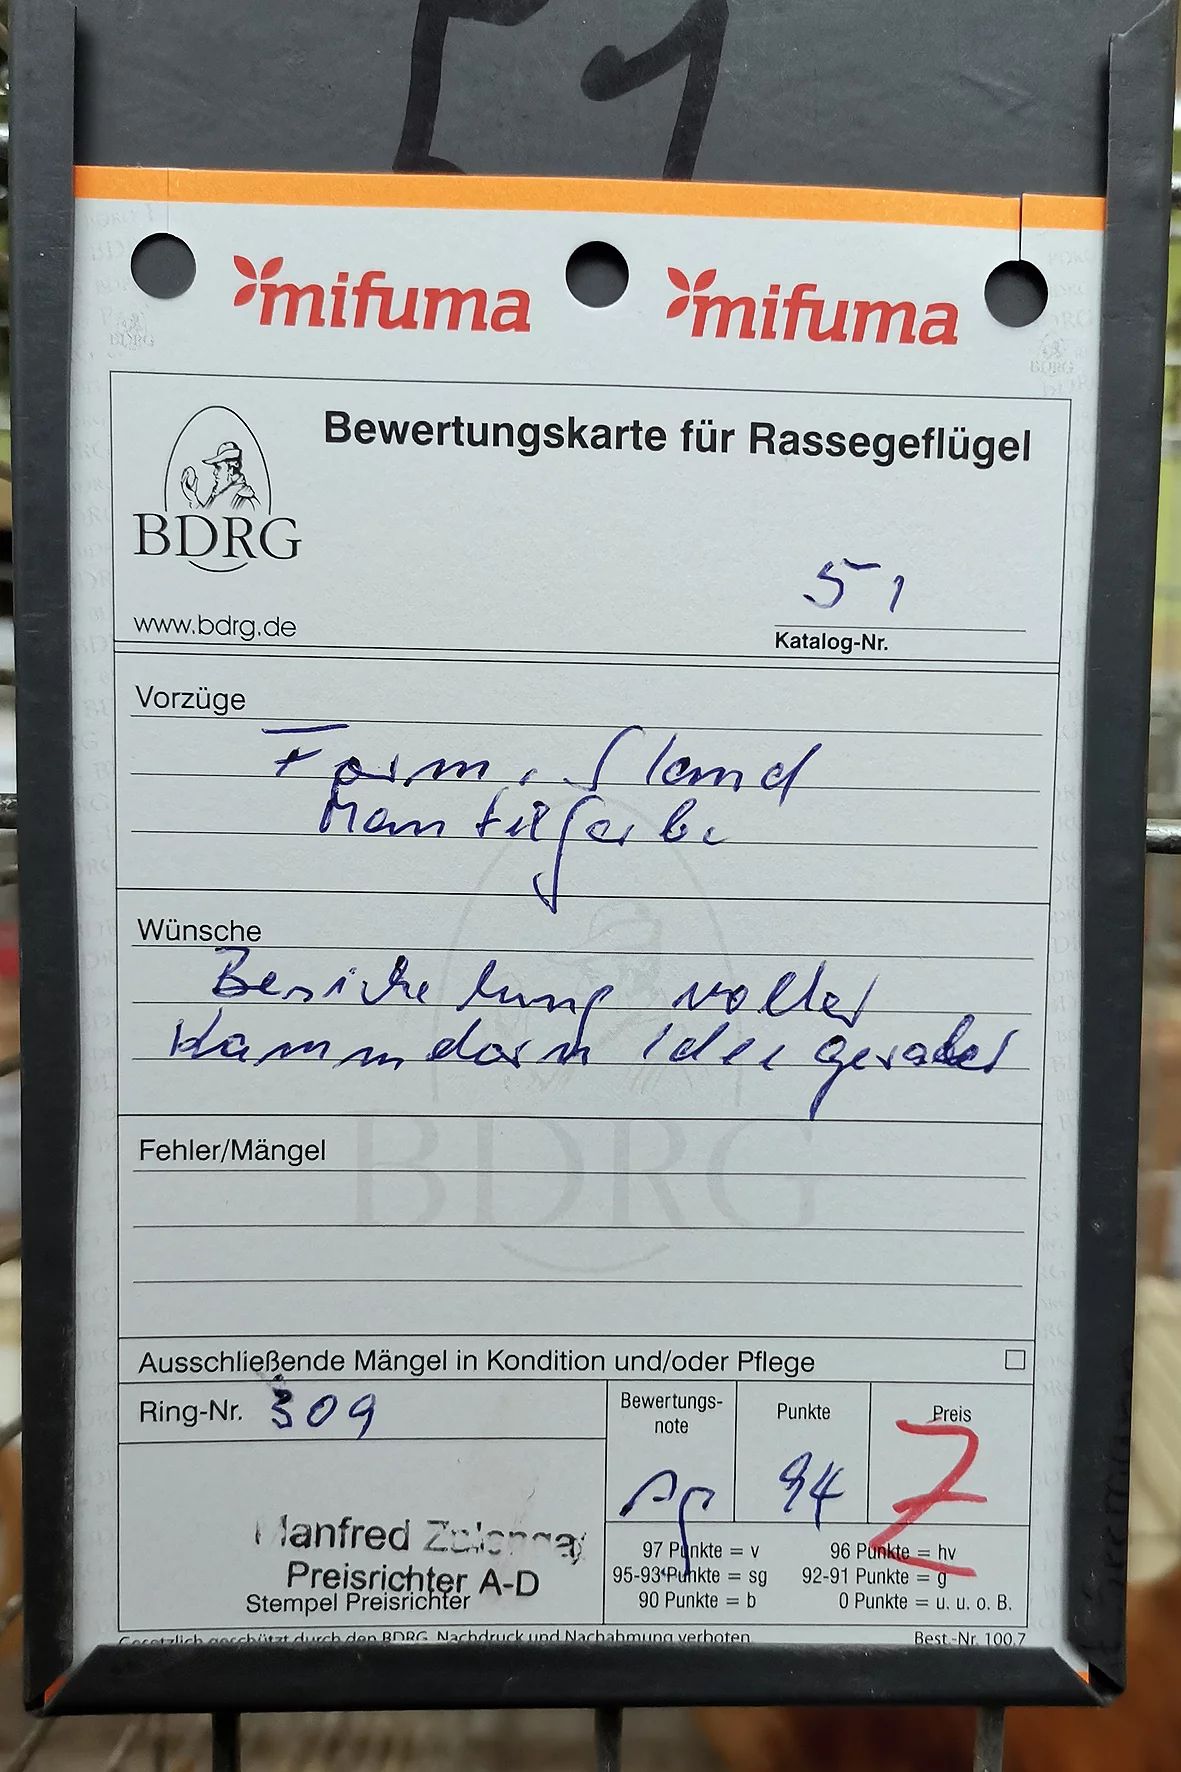 51
mifuma mifuma
BDRG
Bewertungskarte für Rassegeflügel
www.bdrg.de
51
Katalog-Nr.
Vorzüge
Form, Stand
Mantelfarbe
Wünsche
Besichelung voller
Kammdorn idee gerader
Fehler/Mängel
BDRG
Ausschließende Mängel in Kondition und/oder Pflege
Ring-Nr. 309
Bewertungs-
note
Punkte
Preis
sg
94
Z
Manfred
Preisrichter A-D
Stempel Preisrichter
97 Punkte = v
96 Punkte = hv
95-93 Punkte = sg
92-91 Punkte = g
90 Punkte = b
0 Punkte = u. u. o. B.
Gesetzlich geschützt durch den BDRG. Nachdruck und Nachahmung verboten.
Best.-Nr. 100.7